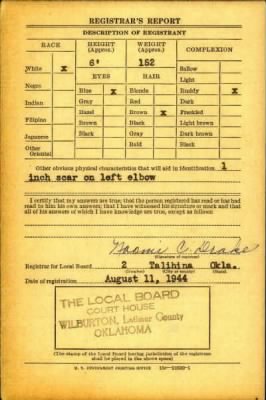 REGISTRAR'S REPORT
DESCRIPTION OF REGISTRANT
RACE HEIGHT (Approx.) WEIGHT (Approx.) COMPLEXION
White X 6' 152 Sallow
EYES HAIR Light
Negro Blue X Blonde Ruddy X
Indian Gray Red Dark
Hazel Brown X Freckled
Filipino Brown Black Light brown
Japanese Black Gray Dark brown
Other Oriental Bald Black
Other obvious physical characteristics that will aid in identification 1
inch scar on left elbow
I certify that my answers are true; that the person registered has read or has had
read to him his own answers; that I have witnessed his signature or mark and that
all of his answers of which I have knowledge are true, except as follows:
Naomi C. Drake
(Signature of registrar)
Registrar for Local Board 2 Talihina Okla.
(Number) (City or county) (State)
Date of registration August 11, 1944
THE LOCAL BOARD
COURT HOUSE
WILBURTON, Latimer County
OKLAHOMA
(The stamp of the Local Board having jurisdiction of the registrant
shall be placed in the above space)
U. S. GOVERNMENT PRINTING OFFICE